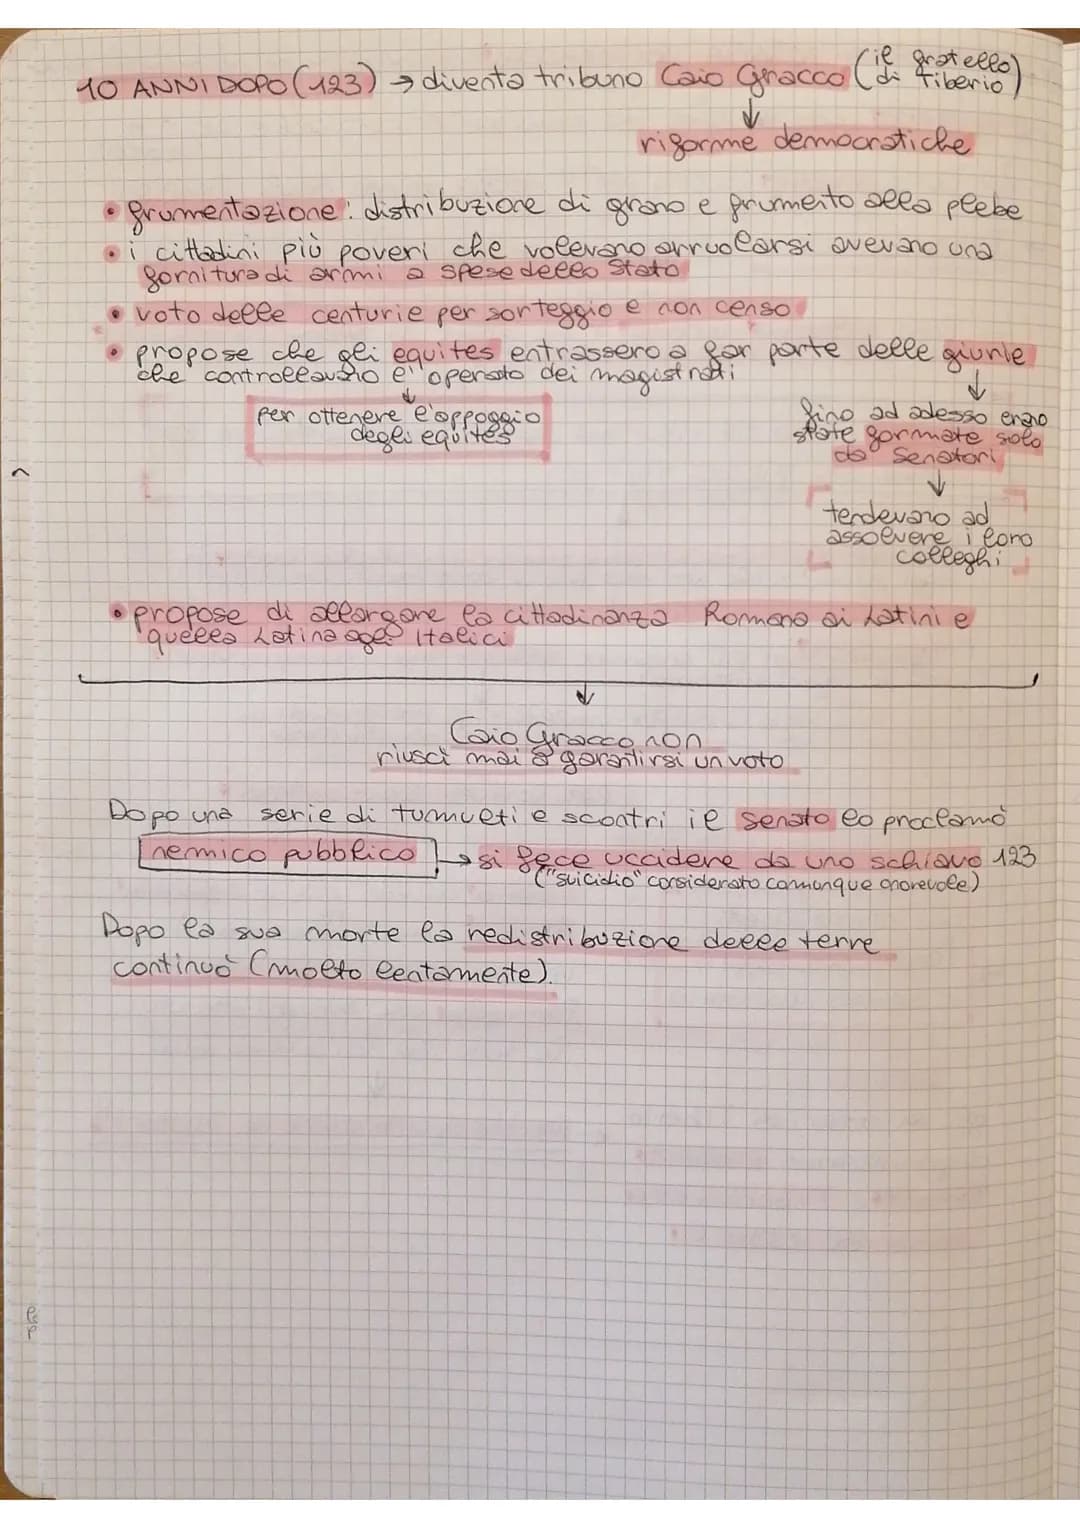 10 ANNI DOPO (123) → diventa tribuno Caio Gracco (il fratello di Tiberio)
↓
riforme democratiche
• frumentazione: distribuzione di grano e frumento alla plebe
• i cittadini più poveri che volevano arruolarsi avevano una
fornitura di armi a spese dello Stato
• voto delle centurie per sorteggio e non censo
• propose che gli equites entrassero a far parte delle giurie
che controllavano l'operato dei magistrati
↓
per ottenere l'appoggio
degli equites
↓
fino ad adesso erano
state formate solo
da Senatori
↓
tendevano ad
assolvere i loro
colleghi
• propose di allargare la cittadinanza Romana ai Latini e
quella Latina agli Italici
↓
Caio Gracco non
riuscì mai a garantirsi un voto
Dopo una serie di tumulti e scontri il senato lo proclamò
nemico pubblico → si fece uccidere da uno schiavo 123
("suicidio" considerato comunque onorevole)
Dopo la sua morte la redistribuzione delle terre
continuò (molto lentamente).